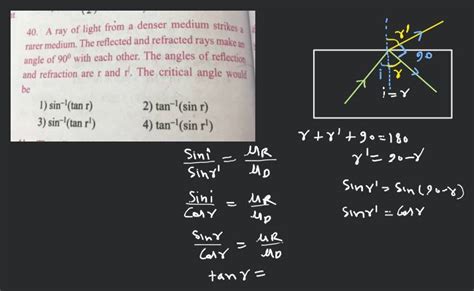 40. A ray of light from a denser medium strikes a
rarer medium. The reflected and refracted rays make an
angle of 90⁰ with each other. The angles of reflection
and refraction are r and r'. The critical angle would
be
1) sin⁻¹(tan r) 2) tan⁻¹(sin r)
3) sin⁻¹(tan r¹) 4) tan⁻¹(sin r¹)
r'
90
i r
i = r
r + r' + 90 = 180
r' = 90 - r
Sin r' = Sin (90 - r)
Sin r' = Cos r
Sin i / Sin r' = μR / μD
Sin i / Cos r = μR / μD
Sin r / Cos r = μR / μD
tan r =